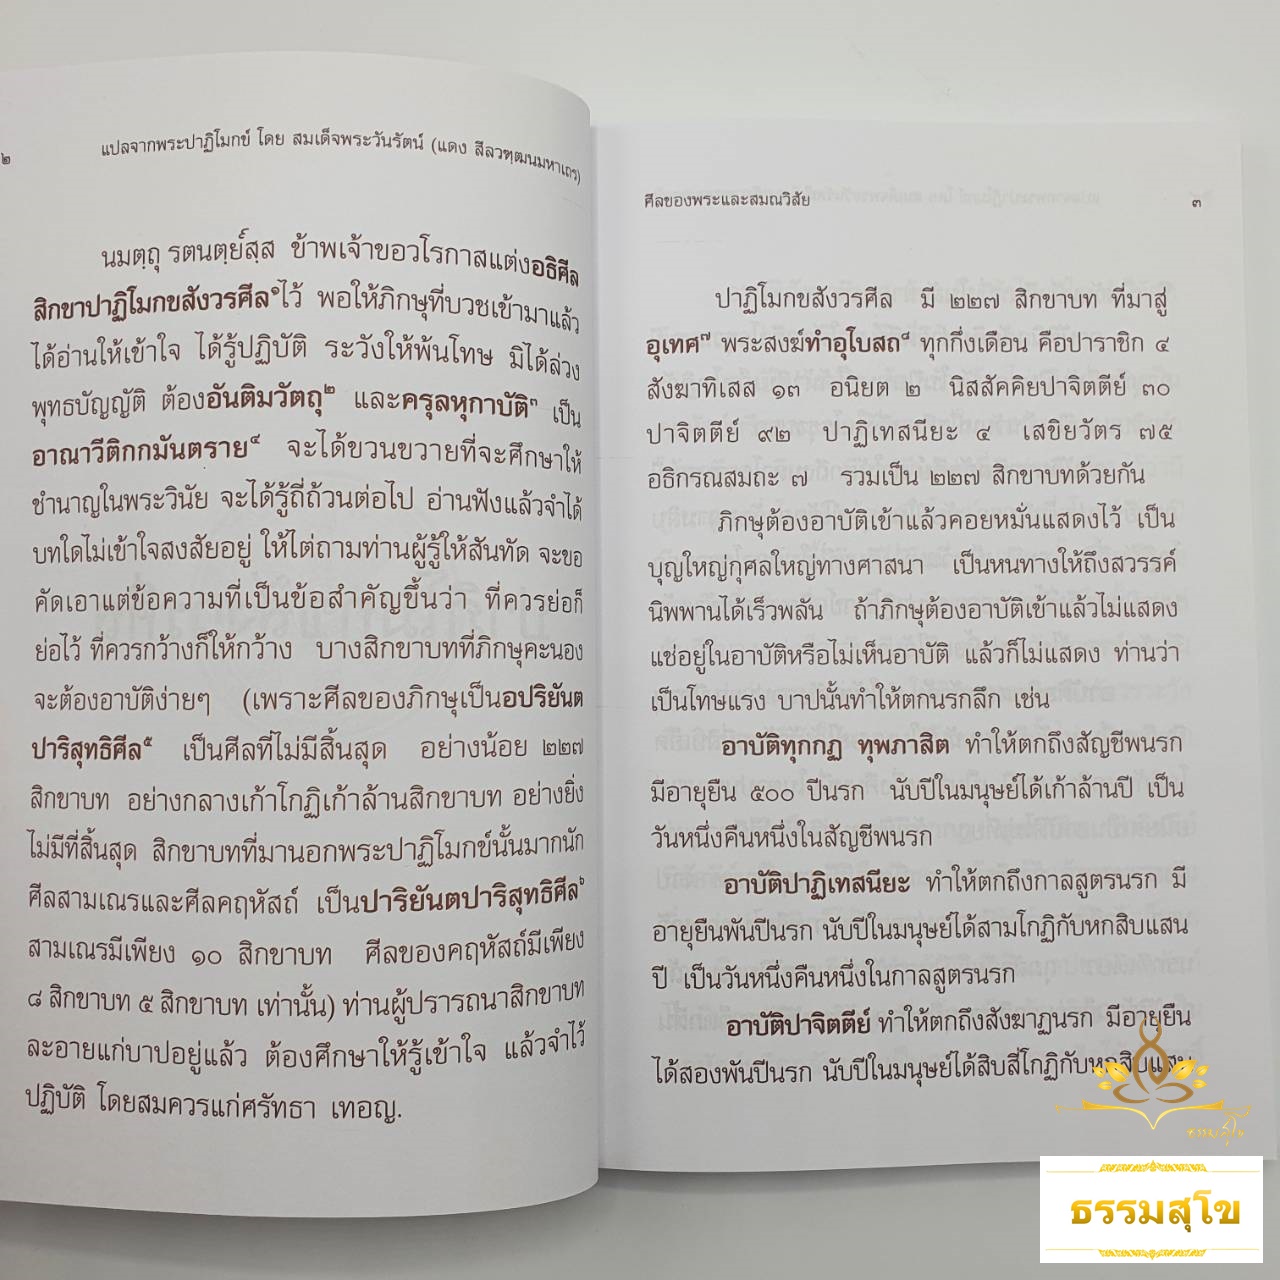 ๒
แปลจากพระปาฏิโมกข์ โดย สมเด็จพระวันรัตน์ (แดง สีลวฑฺฒนมหาเถร)
นมตฺถุ รตนตฺย์สฺส ข้าพเจ้าขอวโรกาสแต่งอธิศีล
สิกขาปาฏิโมกขสังวรศีล๑ไว้ พอให้ภิกษุที่บวชเข้ามาแล้ว
ได้อ่านให้เข้าใจ ได้รู้ปฏิบัติ ระวังให้พ้นโทษ มิได้ล่วง
พุทธบัญญัติ ต้องอันติมวัตถุ๒ และครุลหุกาบัติ๓ เป็น
อาณาวีติกกมันตราย๔ จะได้ขวนขวายที่จะศึกษาให้
ชำนาญในพระวินัย จะได้รู้ถี่ถ้วนต่อไป อ่านฟังแล้วจำได้
บทใดไม่เข้าใจสงสัยอยู่ ให้ไต่ถามท่านผู้รู้ให้สันทัด จะขอ
คัดเอาแต่ข้อความที่เป็นข้อสำคัญขึ้นว่า ที่ควรย่อก็
ย่อไว้ ที่ควรกว้างก็ให้กว้าง บางสิกขาบทที่ภิกษุคะนอง
จะต้องอาบัติง่ายๆ (เพราะศีลของภิกษุเป็นอปริยันต
ปาริสุทธิศีล๕ เป็นศีลที่ไม่มีสิ้นสุด อย่างน้อย ๒๒๗
สิกขาบท อย่างกลางเก้าโกฏิเก้าล้านสิกขาบท อย่างยิ่ง
ไม่มีที่สิ้นสุด สิกขาบทที่มานอกพระปาฏิโมกข์นั้นมากนัก
ศีลสามเณรและศีลคฤหัสถ์ เป็นปาริยันตปาริสุทธิศีล๖
สามเณรมีเพียง ๑๐ สิกขาบท ศีลของคฤหัสถ์มีเพียง
๘ สิกขาบท ๕ สิกขาบท เท่านั้น) ท่านผู้ปรารถนาสิกขาบท
ละอายแก่บาปอยู่แล้ว ต้องศึกษาให้รู้เข้าใจ แล้วจำไว้
ปฏิบัติ โดยสมควรแก่ศรัทธา เทอญ.
ศีลของพระและสมณวิสัย
๓
ปาฏิโมกขสังวรศีล มี ๒๒๗ สิกขาบท ที่มาสู่
อุเทศ๗ พระสงฆ์ทำอุโบสถ๘ ทุกกึ่งเดือน คือปาราชิก ๔
สังฆาทิเสส ๑๓ อนิยต ๒ นิสสัคคิยปาจิตตีย์ ๓๐
ปาจิตตีย์ ๙๒ ปาฏิเทสนียะ ๔ เสขิยวัตร ๗๕
อธิกรณสมถะ ๗ รวมเป็น ๒๒๗ สิกขาบทด้วยกัน
ภิกษุต้องอาบัติเข้าแล้วคอยหมั่นแสดงไว้ เป็น
บุญใหญ่กุศลใหญ่ทางศาสนา เป็นหนทางให้ถึงสวรรค์
นิพพานได้เร็วพลัน ถ้าภิกษุต้องอาบัติเข้าแล้วไม่แสดง
แช่อยู่ในอาบัติหรือไม่เห็นอาบัติ แล้วก็ไม่แสดง ท่านว่า
เป็นโทษแรง บาปนั้นทำให้ตกนรกลึก เช่น
อาบัติทุกกฏ ทุพภาสิต ทำให้ตกถึงสัญชีพนรก
มีอายุยืน ๕๐๐ ปีนรก นับปีในมนุษย์ได้เก้าล้านปี เป็น
วันหนึ่งคืนหนึ่งในสัญชีพนรก
อาบัติปาฏิเทสนียะ ทำให้ตกถึงกาลสูตรนรก มี
อายุยืนพันปีนรก นับปีในมนุษย์ได้สามโกฏิกับหกสิบแสน
ปี เป็นวันหนึ่งคืนหนึ่งในกาลสูตรนรก
อาบัติปาจิตตีย์ ทำให้ตกถึงสังฆาฏนรก มีอายุยืน
ได้สองพันปีนรก นับปีในมนุษย์ได้สิบสี่โกฏิกับหกสิบแสน
ธรรมสุโข
ธรรมสุโข